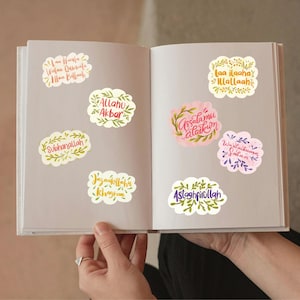 Laa Hawla
Walaa Quwwata
Illaa Billaah
Allahu
Akbar
Subhanallah
Jazaakallahu
Khayran
Laa ilaaha
illallaah
Assalamu
alaikum
Astaghfirullah